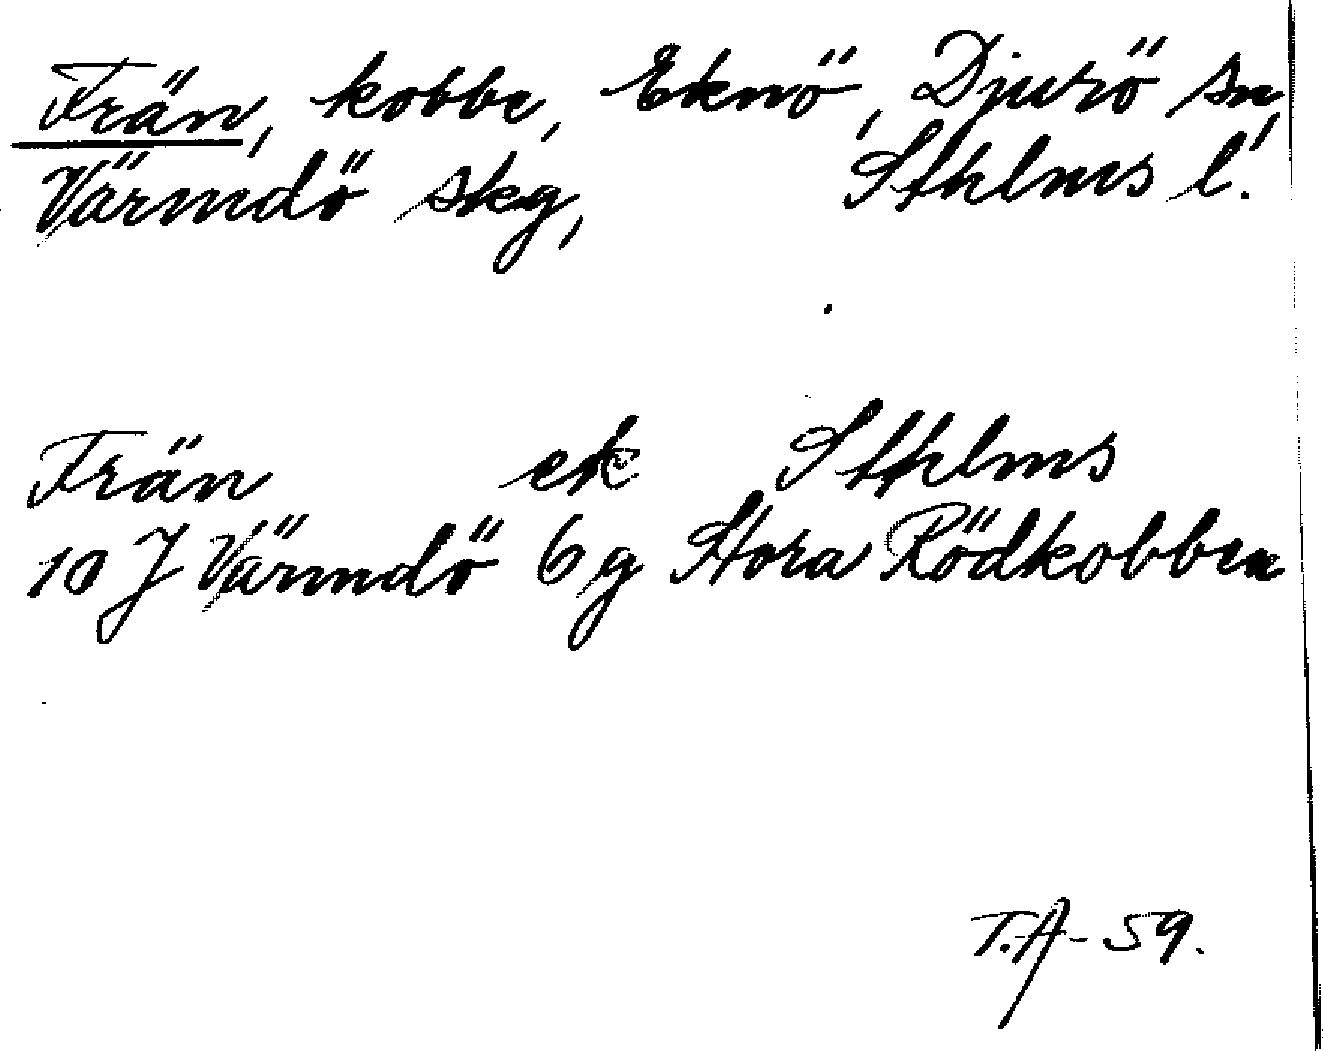 Frän, kobbe, Eknö, Djurö sn,
Värmdö skg, Sthlms l.
Frän ek Sthlms
10 J Värmdö 6 g Stora Rödkobben
T.A-59.